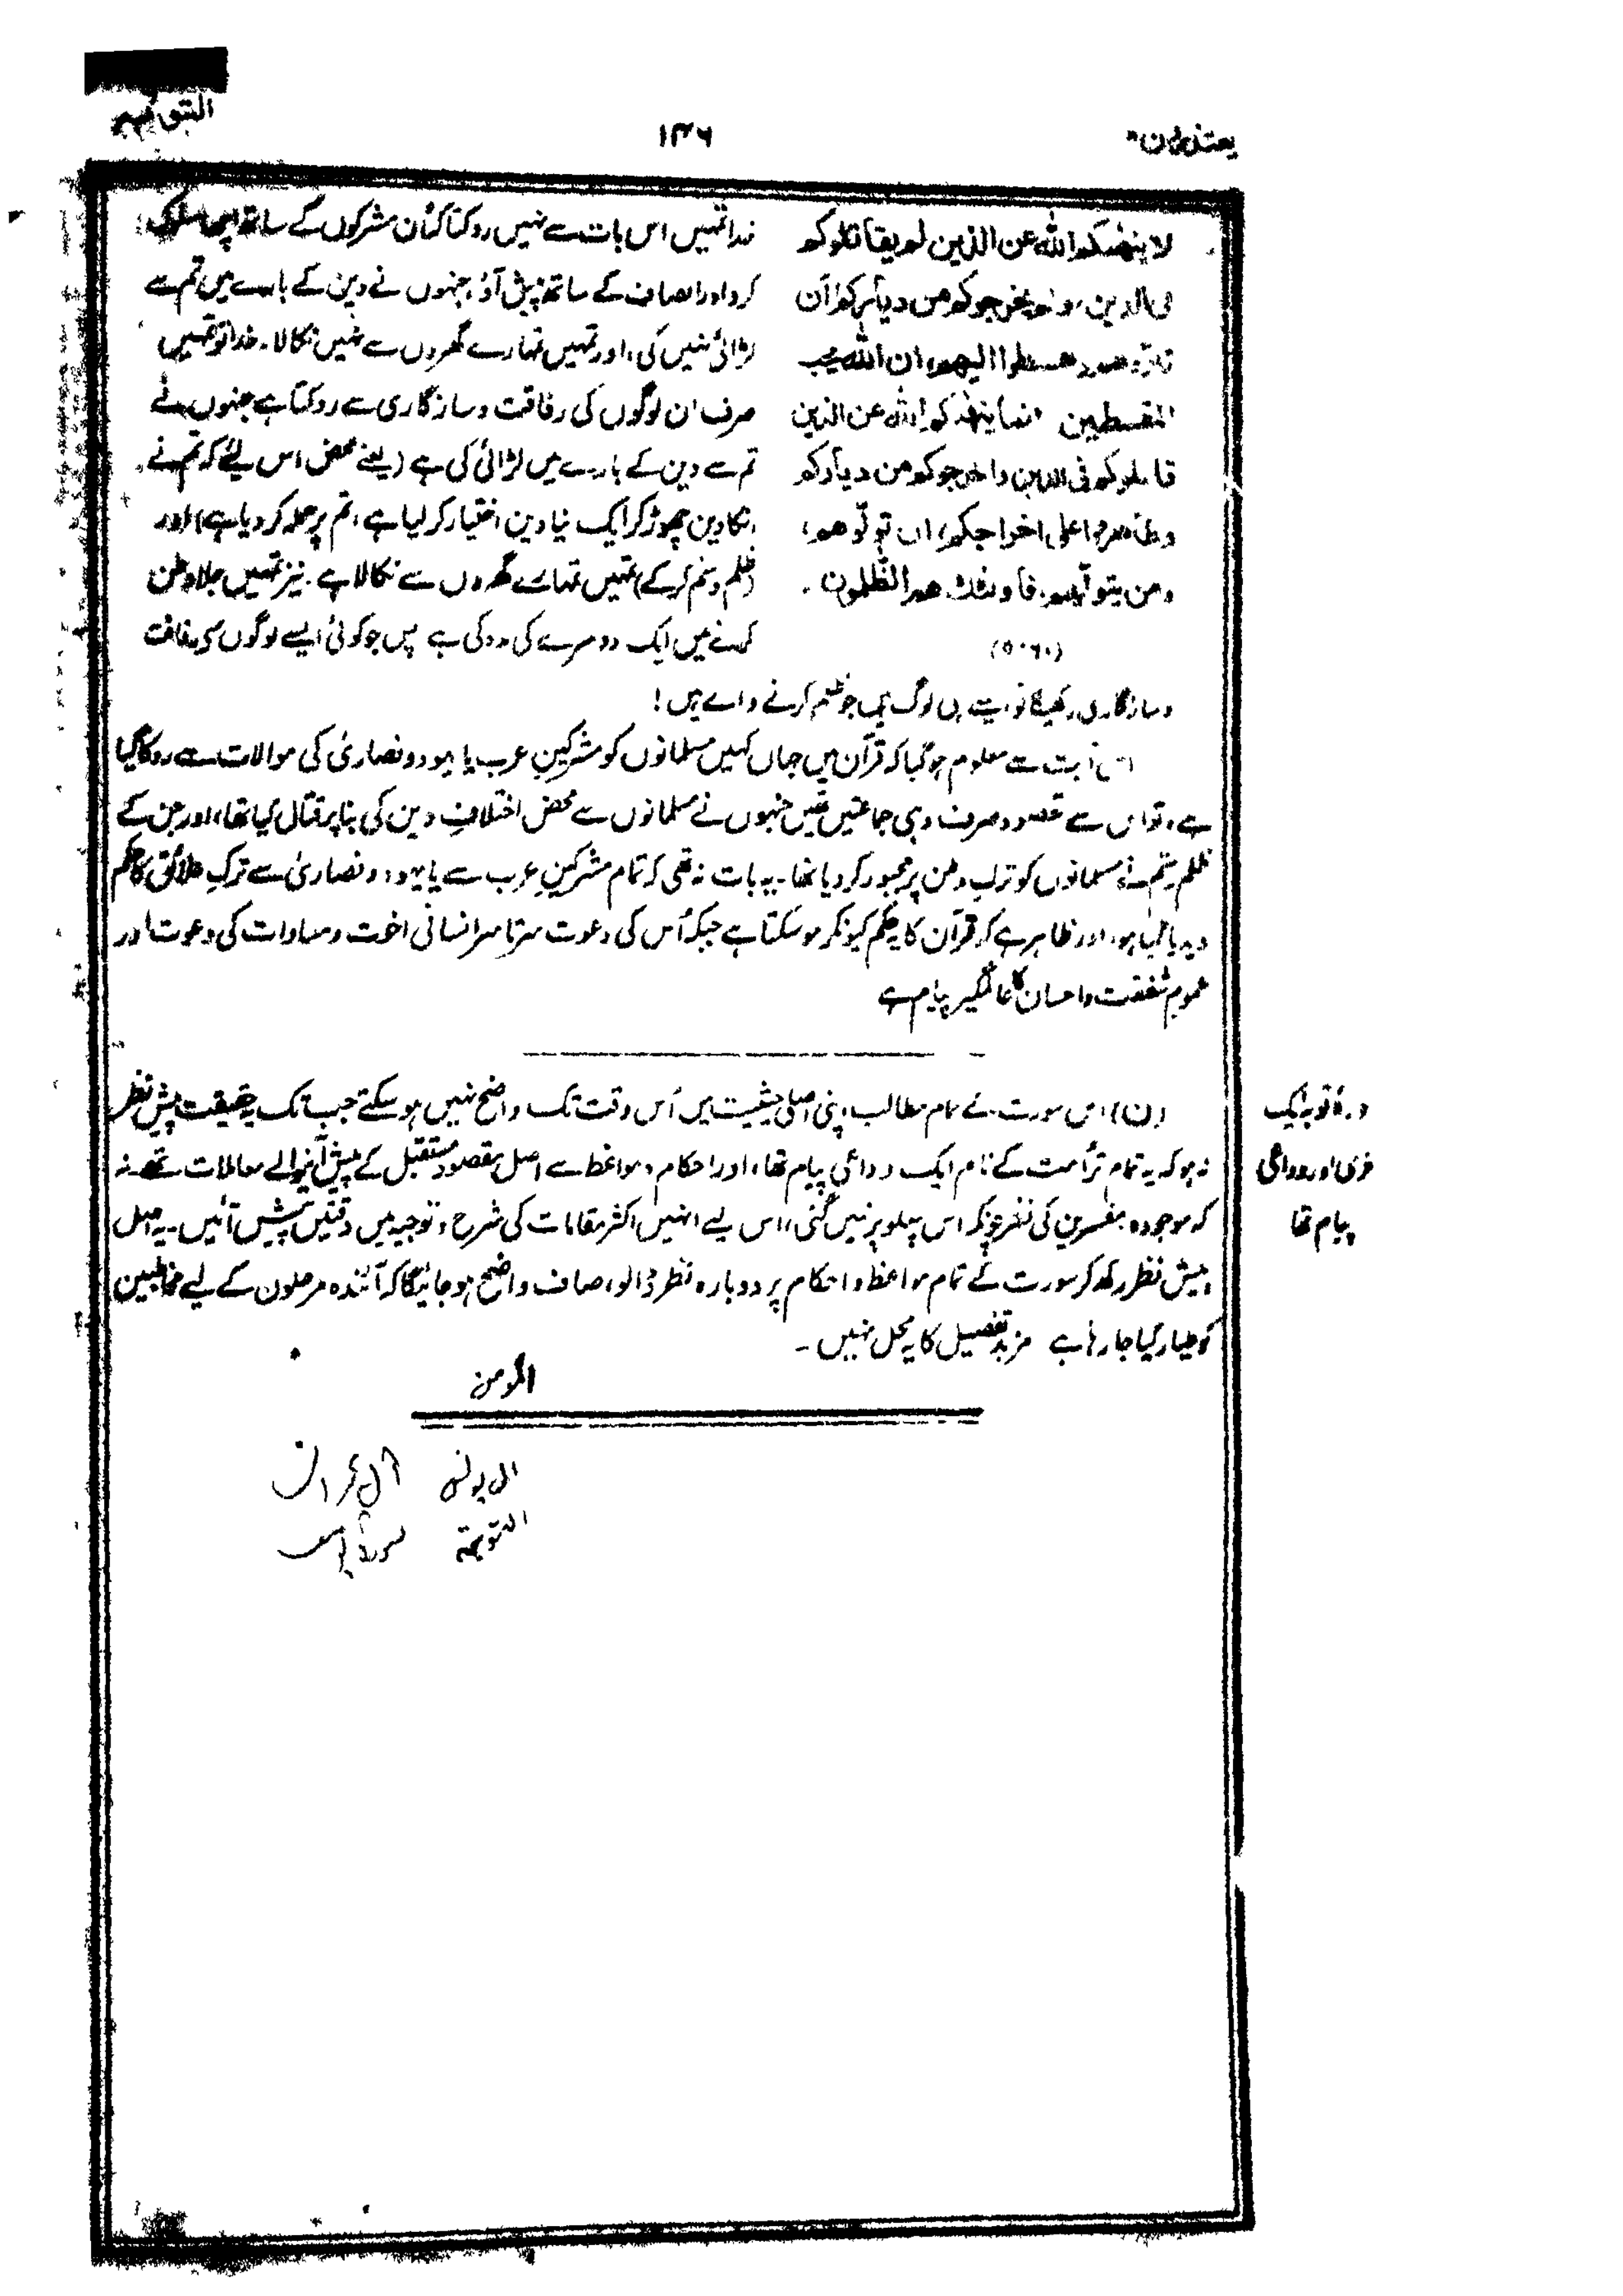 یعتذرون
۱۴۶
التوبہ
لا ینھٰکم اللہ عن الذین لم یقاتلوکم
فی الدین، ولم یخرجوکم من دیارکم ان
تبرّوھم وتقسطوا الیھم، ان اللہ یحب
المقسطین انما ینھٰکم اللہ عن الذین
قاتلوکم فی الدین واخرجوکم من دیارکم
وظاھروا علی اخراجکم، ان تولّوھم،
ومن یتولّھم، فأولٰئک ھم الظّٰلمون.
(۶۰:۵)
خدا تمہیں اس بات سے نہیں روکتا کہ اُن مشرکوں کے ساتھ اچھا سلوک
کرو اور انصاف کے ساتھ پیش آؤ، جنہوں نے دین کے بارے میں تم سے
لڑائی نہیں کی، اور تمہیں تمہارے گھروں سے نہیں نکالا۔ خدا تو تمہیں
صرف ان لوگوں کی رفاقت و سازگاری سے روکتا ہے جنہوں نے
تم سے دین کے بارے میں لڑائی کی ہے (یعنے محض اس لیے کہ تم نے
انکا دین چھوڑ کر ایک نیا دین اختیار کر لیا ہے، تم پر حملہ کر دیا ہے) اور
(ظلم و ستم کرکے) تمہیں تمہارے گھروں سے نکالا ہے۔ نیز تمہیں جلاوطن
کرنے میں ایک دوسرے کی مدد کی ہے پس جو کوئی ایسے لوگوں سے رفاقت
و سازگاری رکھیگا تو ایسے ہی لوگ ہیں جو ظلم کرنے والے ہیں!
اس آیت سے معلوم ہوگیا کہ قرآن میں جہاں کہیں مسلمانوں کو مشرکینِ عرب یا یہود و نصاریٰ کی موالات سے روکا گیا
ہے، تو اس سے مقصود صرف وہی جماعتیں تھیں جنہوں نے مسلمانوں سے محض اختلافِ دین کی بنا پر قتال کیا تھا، اور جن کے
ظلم و ستم نے مسلمانوں کو ترکِ وطن پر مجبور کر دیا تھا۔ یہ بات نہ تھی کہ تمام مشرکینِ عرب سے یا یہود و نصاریٰ سے ترکِ علائق کا حکم
دیدیا گیا ہو، اور ظاہر ہے کہ قرآن کا یہ حکم کیونکر ہو سکتا ہے جبکہ اُس کی دعوت سرتا سر انسانی اخوت و مساوات کی دعوت اور
عمومِ شفقت و احسان کا عالمگیر پیام ہے
(ن) اس سورت کے تمام مطالب اپنی اصلی حیثیت میں اُس وقت تک واضح نہیں ہو سکتے جب تک یہ حقیقت پیشِ نظر
نہ ہو کہ یہ تمام تر اُمت کے نام ایک وداعی پیام تھا، اور احکام و مواعظ سے اصل مقصود مستقبل کے پیش آنیوالے معاملات تھے۔ نہ
کہ موجودہ۔ مفسرین کی نظر چونکہ اس پہلو پر نہیں گئی، اس لیے انہیں اکثر مقامات کی شرح و توجیہ میں دقتیں پیش آئیں۔ یہ اصل
پیش نظر رکھ کر سورت کے تمام مواعظ و احکام پر دوبارہ نظر ڈالو، صاف واضح ہو جائیگا کہ آئندہ مرحلوں کے لیے مخاطبین
کو طیار کیا جا رہا ہے مزید تفصیل کا یہ محل نہیں۔
سورۂ توبہ ایک
آخری اور وداعی
پیام تھا
المومن
آل عمران
التوبة